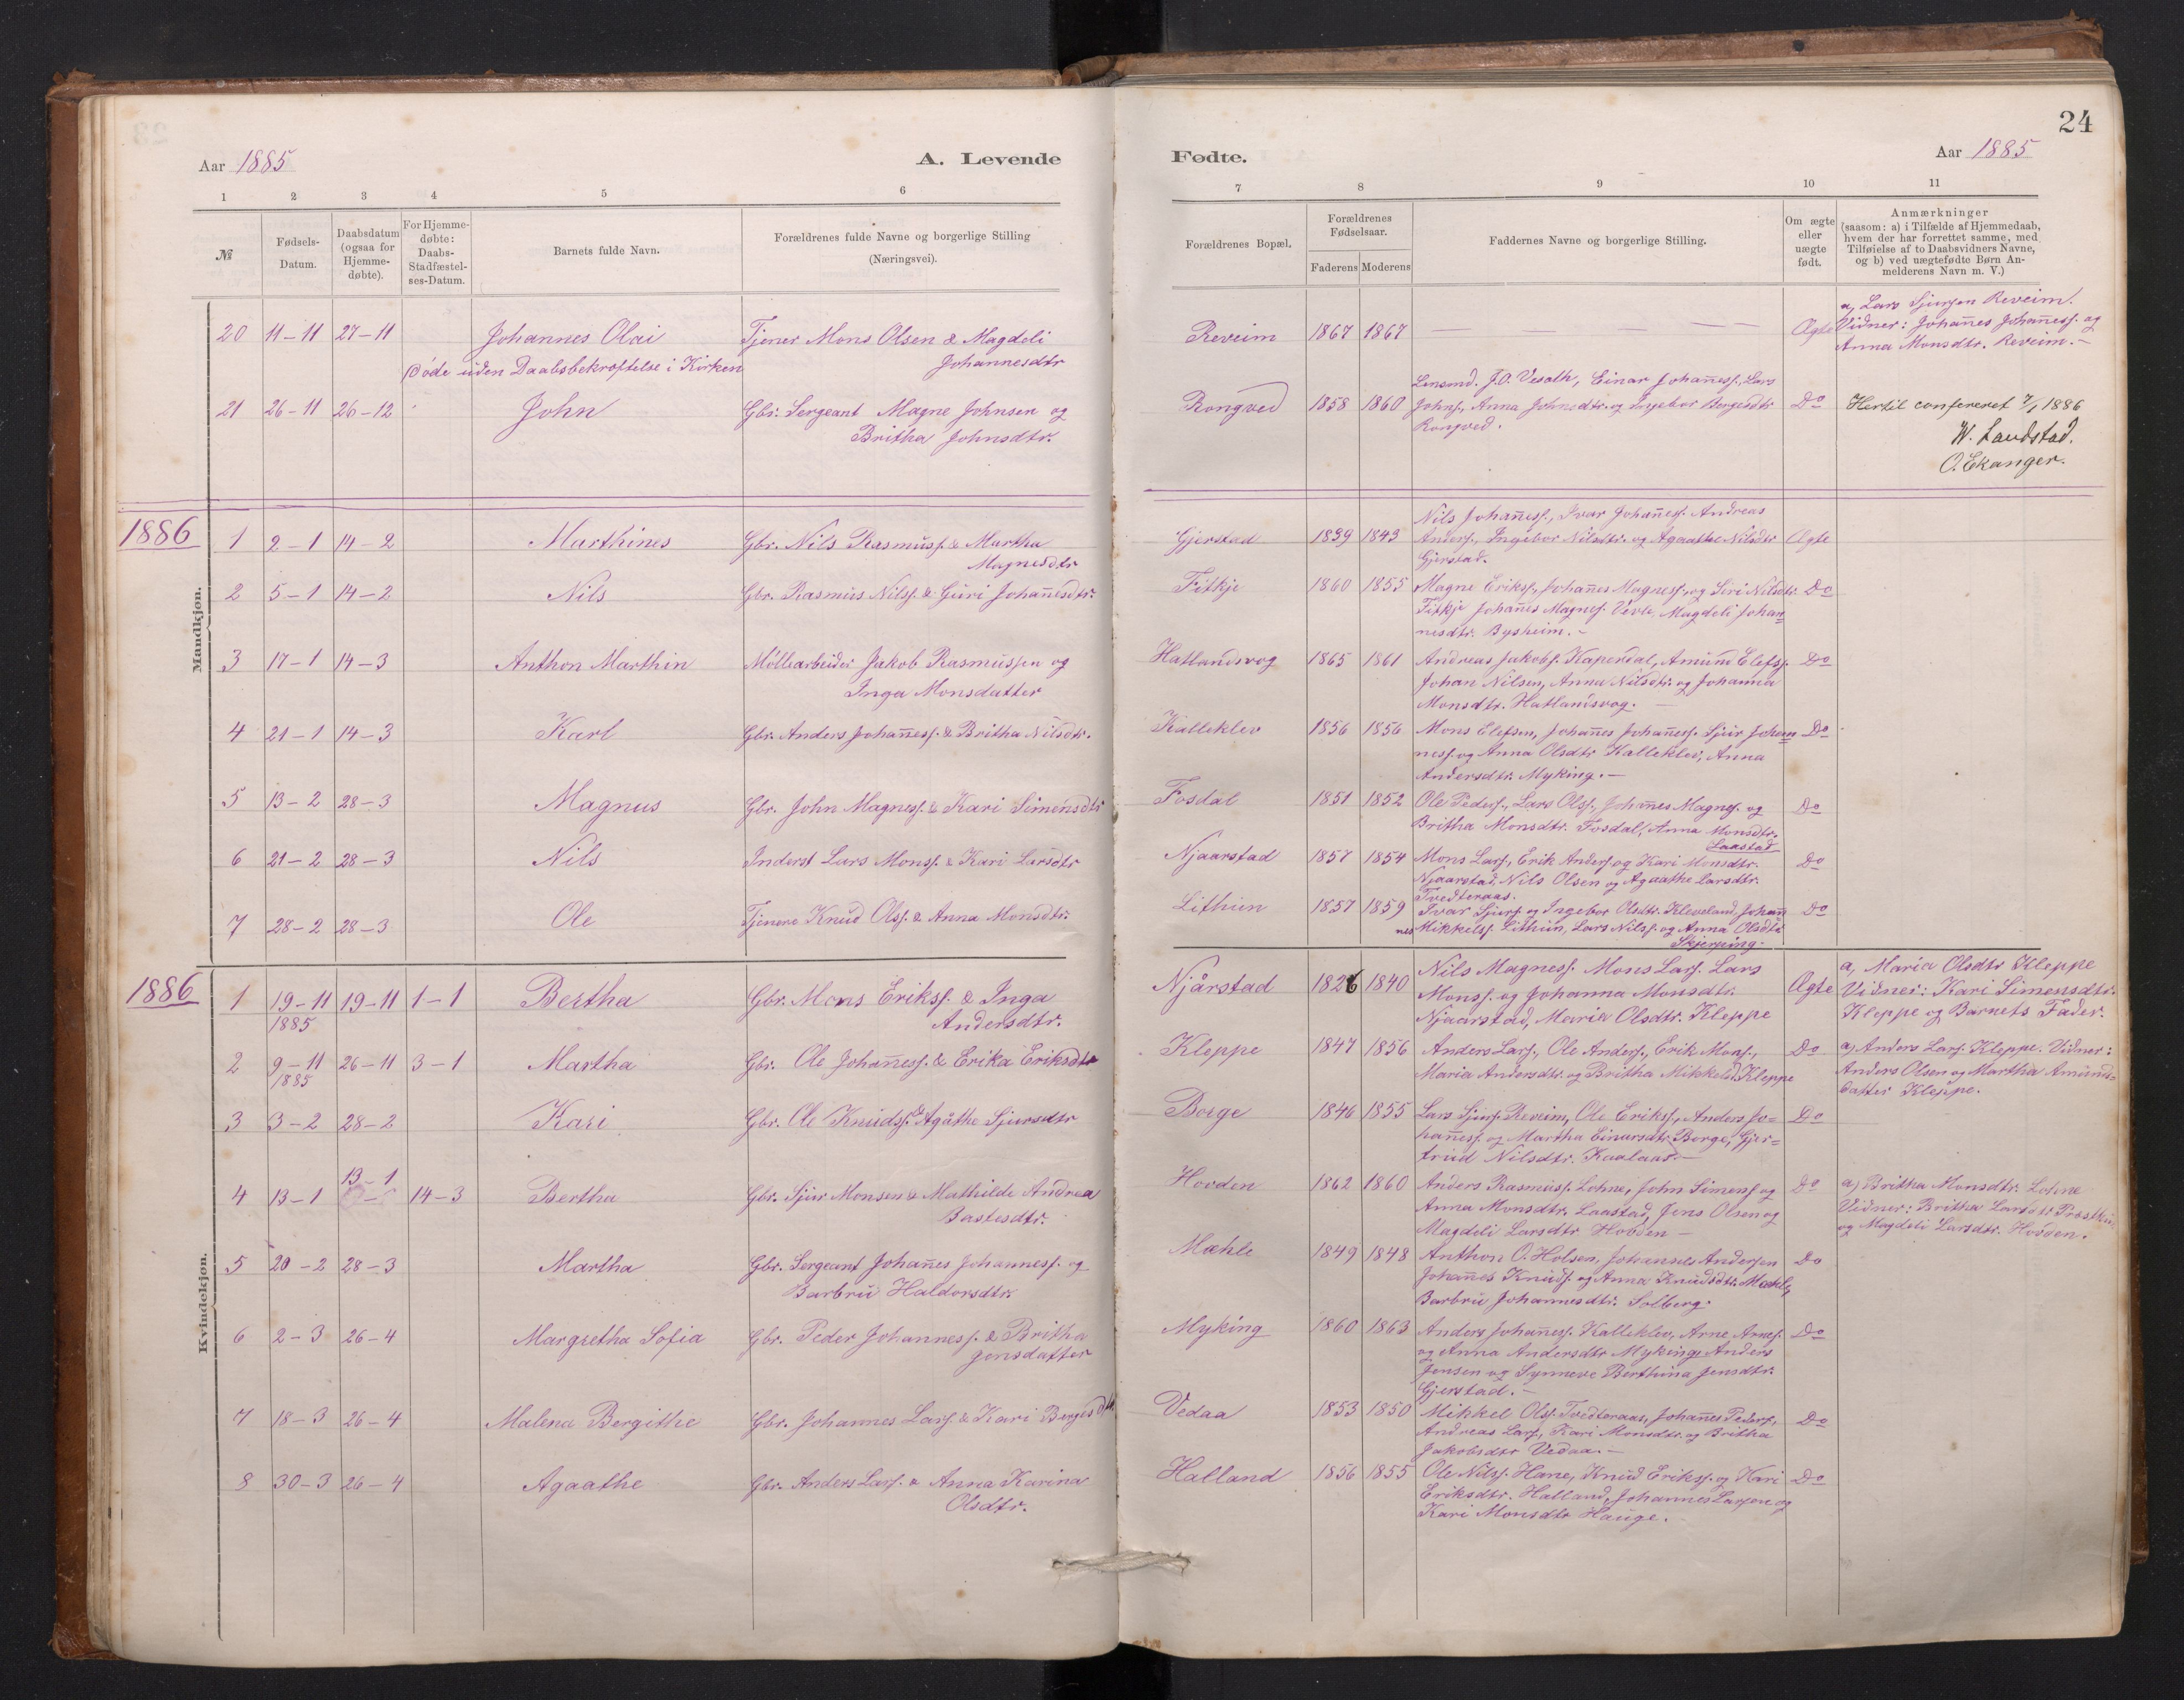 24
Aar 1885
A. Levende
Fødte.
Aar 1885
1 2 3 4 5 6
7 8 9 10 11
№
Fødsels-
Datum.
Daabsdatum
(ogsaa for
Hjemme-
døbte).
For Hjemme-
døbte:
Daabs-
Stadfæstel-
ses-Datum.
Barnets fulde Navn.
Forældrenes fulde Navne og borgerlige Stilling
(Næringsvei).
Forældrenes Bopæl.
Forældrenes
Fødselsaar.
Faderens Moderens
Faddernes Navne og borgerlige Stilling.
Om ægte
eller
uægte
født.
Anmærkninger
(saasom: a) i Tilfælde af Hjemmedaab,
hvem der har forrettet samme, med
Tilføielse af to Daabsvidners Navne,
og b) ved uægtefødte Børn An-
melderens Navn m. V.)
20 11-11 27-11 Johannes Olai Tjener Mons Olsen & Magdeli
Johannesdtr
Døde uden Daabsbekræftelse i Kirken
Reveim 1867 1867 — — — — Ægte
a, Lars Sjursen Reveim.
Vidner: Johannes Johanness. og
Anna Monsdtr. Reveim.-
21 26-11 26-12 John Gbr. Sergeant Magne Johnsen og
Britha Johnsdtr.
Rongved 1858 1860
Lensmd. J.O. Vesoth, Einar Johaness., Lars
Johns., Anna Johnsdtr. og Ingebor Bergesdtr
Rongved.
Do Hertil confereret 7/1 1886
W. Landstad.
O. Ekanger.
1886
Mandkjøn.
1 2-1 14-2 Marthines Gbr. Nils Rasmuss. & Martha
Magnesdtr
Gjerstad 1839 1843
Nils Johaness., Ivar Johaness. Andreas
Anders., Ingebor Nilsdtr. og Agaathe Nilsdtr
Gjerstad.
Ægte
2 5-1 14-2 Nils Gbr. Rasmus Nilss. & Guri Johanesdtr.
Fitkje 1860 1855 Magne Erikss., Johanes Magness. og Siri Nilsdtr. Do
Fitkje Johanes Magnes. Vevle, Magdeli Johan
nesdtr. Bysheim.-
3 17-1 14-3 Anthon Marthin Møllearbeider Jakob Rasmussen og
Inga Monsdatter
Hatlandsvog 1865 1861 Andreas Jakobs. Kaperdal, Amund Elefss. Do
Johan Nilsen, Anna Nilsdtr. og Johanna
Monsdtr. Hatlandsvog.
4 21-1 14-3 Karl Gbr. Anders Johaness. & Britha Nilsdtr.
Kalleklev 1856 1856 Mons Elefsen, Johanes Johaness. Sjur Johan Do
ness. og Anna Olsdtr Kalleklev, Anna
Andersdtr. Myking.-
5 13-2 28-3 Magnus Gbr. John Magness. & Kari Simensdtr
Fosdal 1851 1852 Ole Peders., Lars Olss., Johanes Magnes. og Do
Britha Monsdtr. Fosdal, Anna Monsdtr.
Laastad
6 21-2 28-3 Nils Inderst Lars Monss. & Kari Larsdtr
Njaarstad 1857 1854 Mons Lars., Erik Anders. og Kari Monsdtr. Do
Njaarstad. Nils Olsen og Agaathe Larsdtr.
Tvedteraas.
7 28-2 28-3 Ole Tjenere Knud Olss. & Anna Monsdtr.
Lithun 1857 1859 Ivar Sjurs. og Ingebor Olsdtr. Kleveland, Johan Do
nes Mikkels. Lithun, Lars Nilss. og Anna Olsdtr
Skjerping.
1886
Kvindekjøn.
1 19-11 19-11 1-1 Bertha Gbr. Mons Erikss. & Inga
1885 Andersdtr.
Njårstad 1826 1840
Nils Magness. Mons Lars. Lars
Monss. og Johanna Monsdtr.
Njaarstad, Maria Olsdtr. Kleppe
Ægte
a, Maria Olsdtr Kleppe
Vidner: Kari Simensdtr.
Kleppe og Barnets Fader.
2 9-11 26-11 3-1 Martha Gbr. Ole Johaness. & Erika Eriksdtr
1885
Kleppe 1847 1856 Anders Lars., Ole Anders., Erik Mons., Do
Maria Andersdtr. og Britha Mikkelsd. Kleppe
a, Anders Lars. Kleppe. Vidner:
Anders Olsen og Martha Amunds-
datter Kleppe.
3 3-2 28-2 Kari Gbr. Ole Knudss. & Agåthe Sjursdtr
Borge 1846 1855 Lars Sjurs. Reveim, Ole Erikss., Anders Jo- Do
haness. og Martha Einarsdtr. Borge, Gjer-
trud Nilsdtr. Kaalaas.-
4 13-1 13-1 14-3 Bertha Gbr. Sjur Monsen & Mathilde Andrea
Bastesdtr.
Hovden 1862 1860 Anders Rasmuss. Lohne, John Simens. og Do
Anna Monsdtr. Laastad, Jens Olsen og
Magdeli Larsdtr Hovden -
a, Britha Monsdtr. Lohne
Vidner: Britha Larsdtr
og Magdeli Larsdtr. Hovden.
5 20-2 28-3 Martha Gbr. Sergeant Johanes Johanness. og
Barbru Haldorsdtr.
Mæhle 1849 1848 Anthon O. Holsen, Johannes Andersen Do
Johanes Knuds. og Anna Knudsdtr. Mæhle,
Barbru Johannesdtr. Solberg.
6 2-3 26-4 Margretha Sofia Gbr. Peder Johanness. & Britha
Jensdatter
Myking 1860 1863 Anders Johaness. Kalleklev, Arne Arnes. Do
og Anna Andersdtr Myking, Anders
Jensen og Synneve Berthina Jensdtr.
Gjerstad.-
7 18-3 26-4 Malena Bergithe Gbr. Johannes Lars. & Kari Bergesdtr
Vedaa 1853 1850 Mikkel Olss. Tvedteraas, Johanes Peders., Do
Andreas Lars., Kari Monsdtr. og Britha
Jakobsdtr Vedaa.-
8 30-3 26-4 Agaathe Gbr. Anders Lars. & Anna Karina
Olsdtr.
Halland 1856 1855 Ole Nilss. Hane, Knud Erikss. og Kari Do
Eriksdtr. Halland, Johannes Larsen og
Kari Monsdtr Hauge.